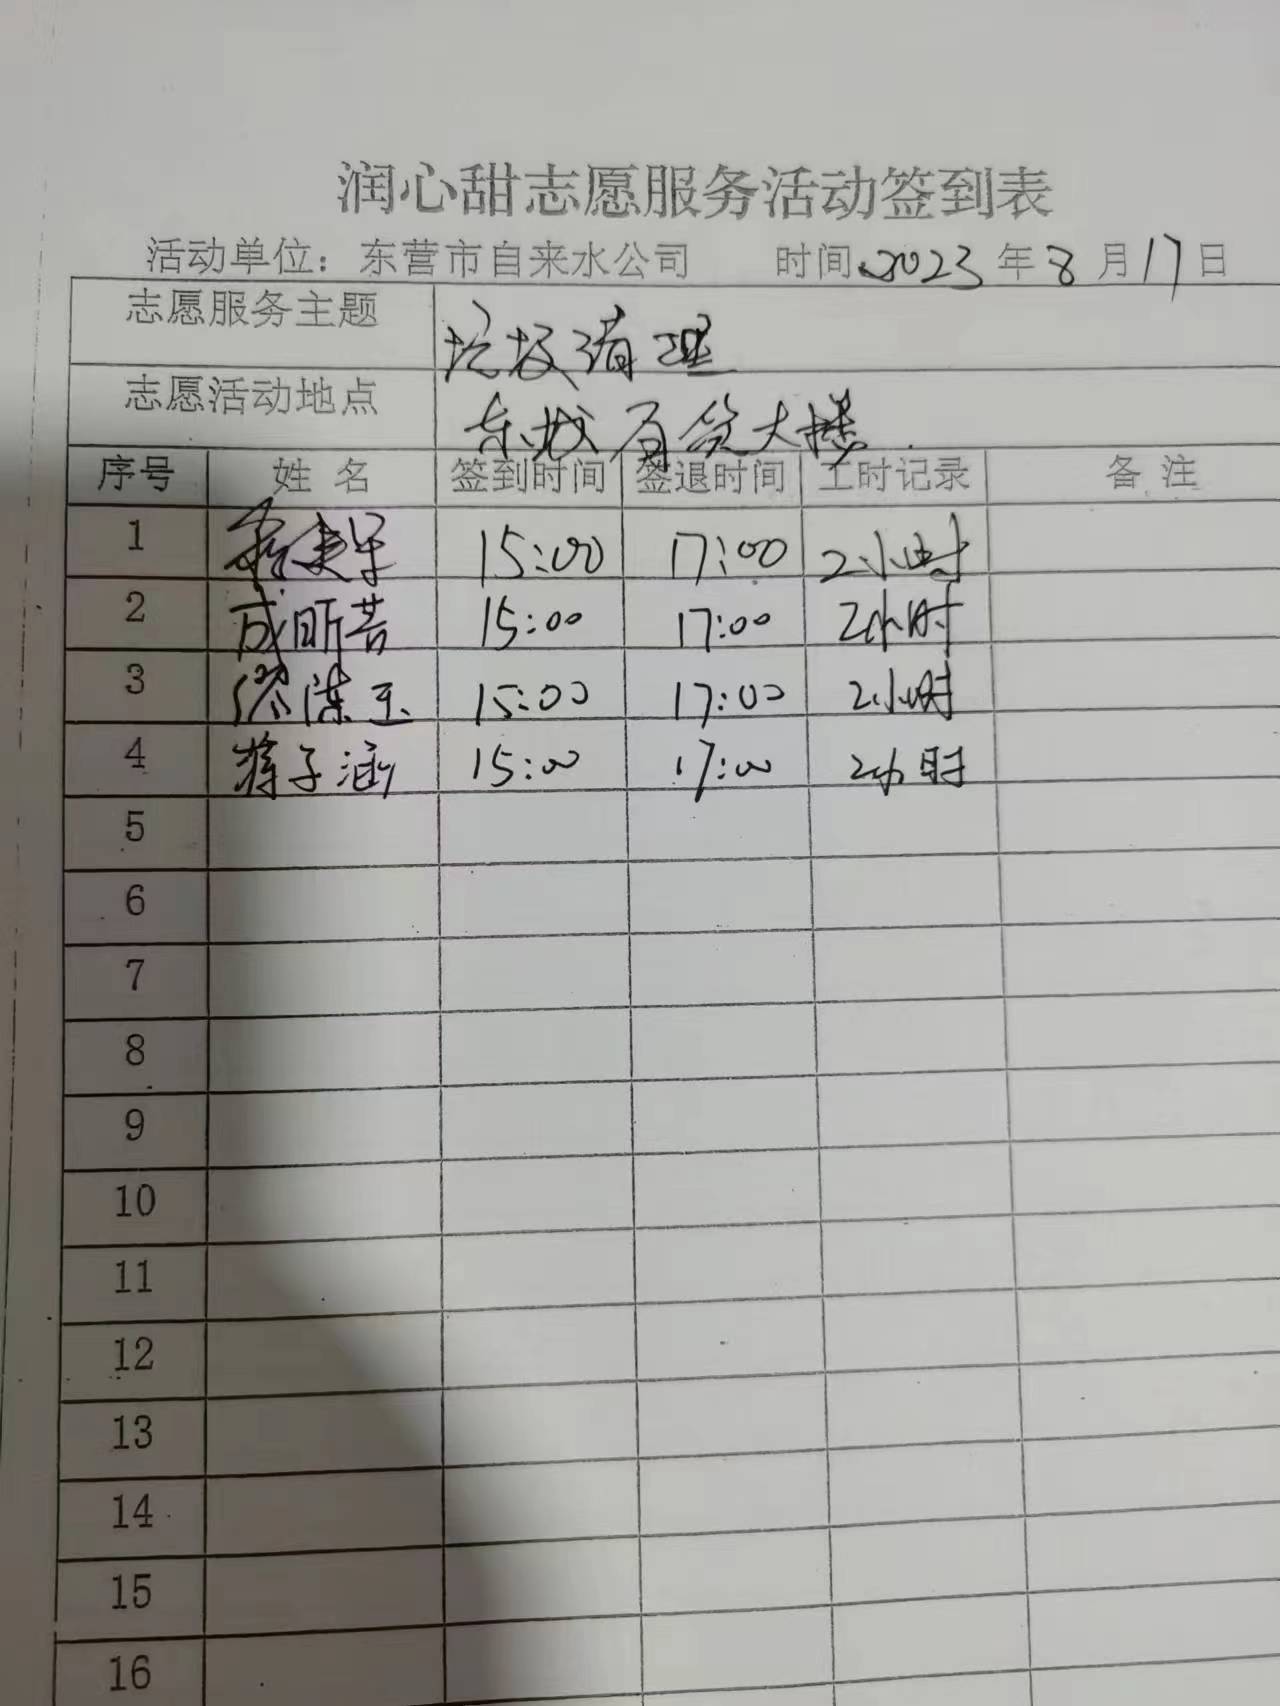 润心甜志愿服务活动签到表
活动单位：东营市自来水公司 时间 2023 年 8 月 17 日
志愿服务主题 垃圾清理
志愿活动地点 东城百货大楼
序号 姓名 签到时间 签退时间 工时记录 备注
1 15:00 17:00 2小时
2 成昕芸 15:00 17:00 2小时
3 15:00 17:00 2小时
4 蒋子涵 15:00 17:00 2小时
5
6
7
8
9
10
11
12
13
14
15
16